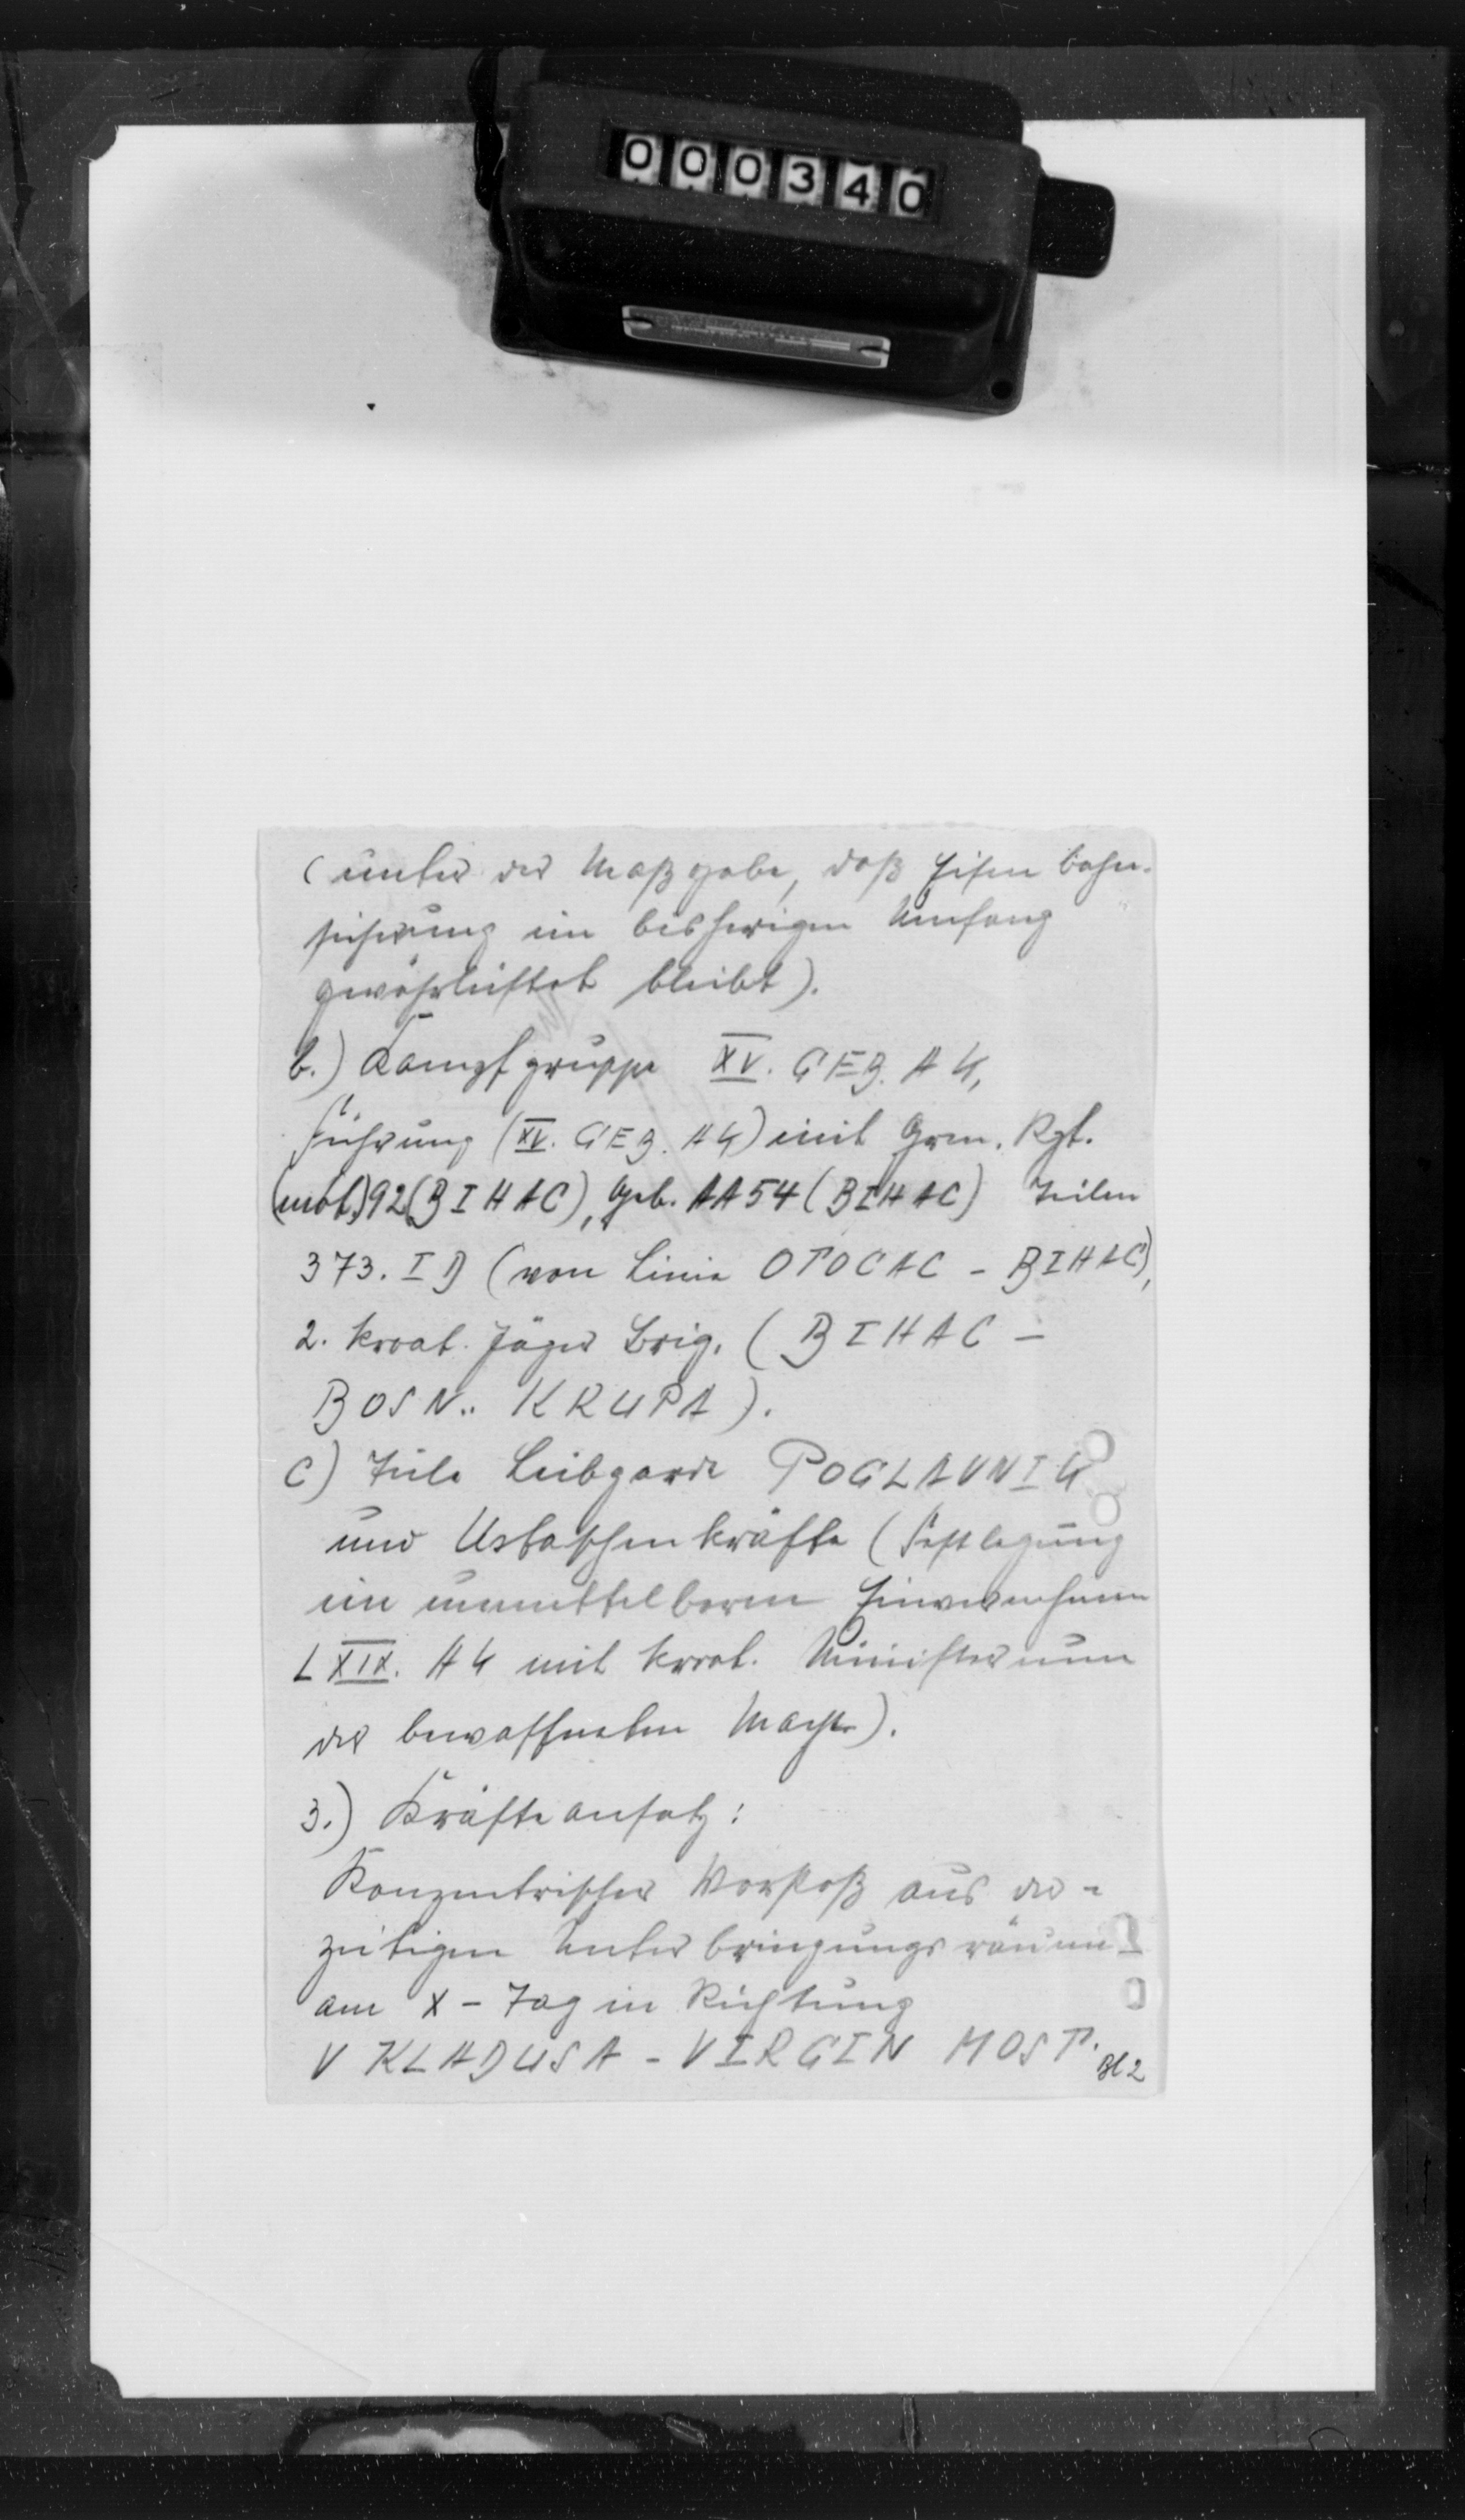 000340
(unter der Maßgabe, daß Eisenbahn-
sicherung im bisherigen Umfang
gewährleistet bleibt).
b.) Kampfgruppe XV. GEB. AK,
Führung (XV. GEB. AK) mit Gren. Rgt.
(mot.) 92 (BIHAC), Geb. AA 54 (BIHAC) Teilen
373. ID (von Linie OTOCAC - BIHAC),
2. kroat. Jäger Brig. (BIHAC -
BOSN.. KRUPA).
c) Teile Leibgarde POGLAVNIK
und Ustaschenkräfte (Festlegung
im unmittelbaren Einvernehmen
LXIX. AK mit kroat. Ministerium
der bewaffneten Macht).
3.) Kräfteansatz:
Konzentrischer Vorstoß aus der-
zeitigen Unterbringungsräumen
am X-Tag in Richtung
V KLADUSA - VIRGIN MOST.
Bl 2